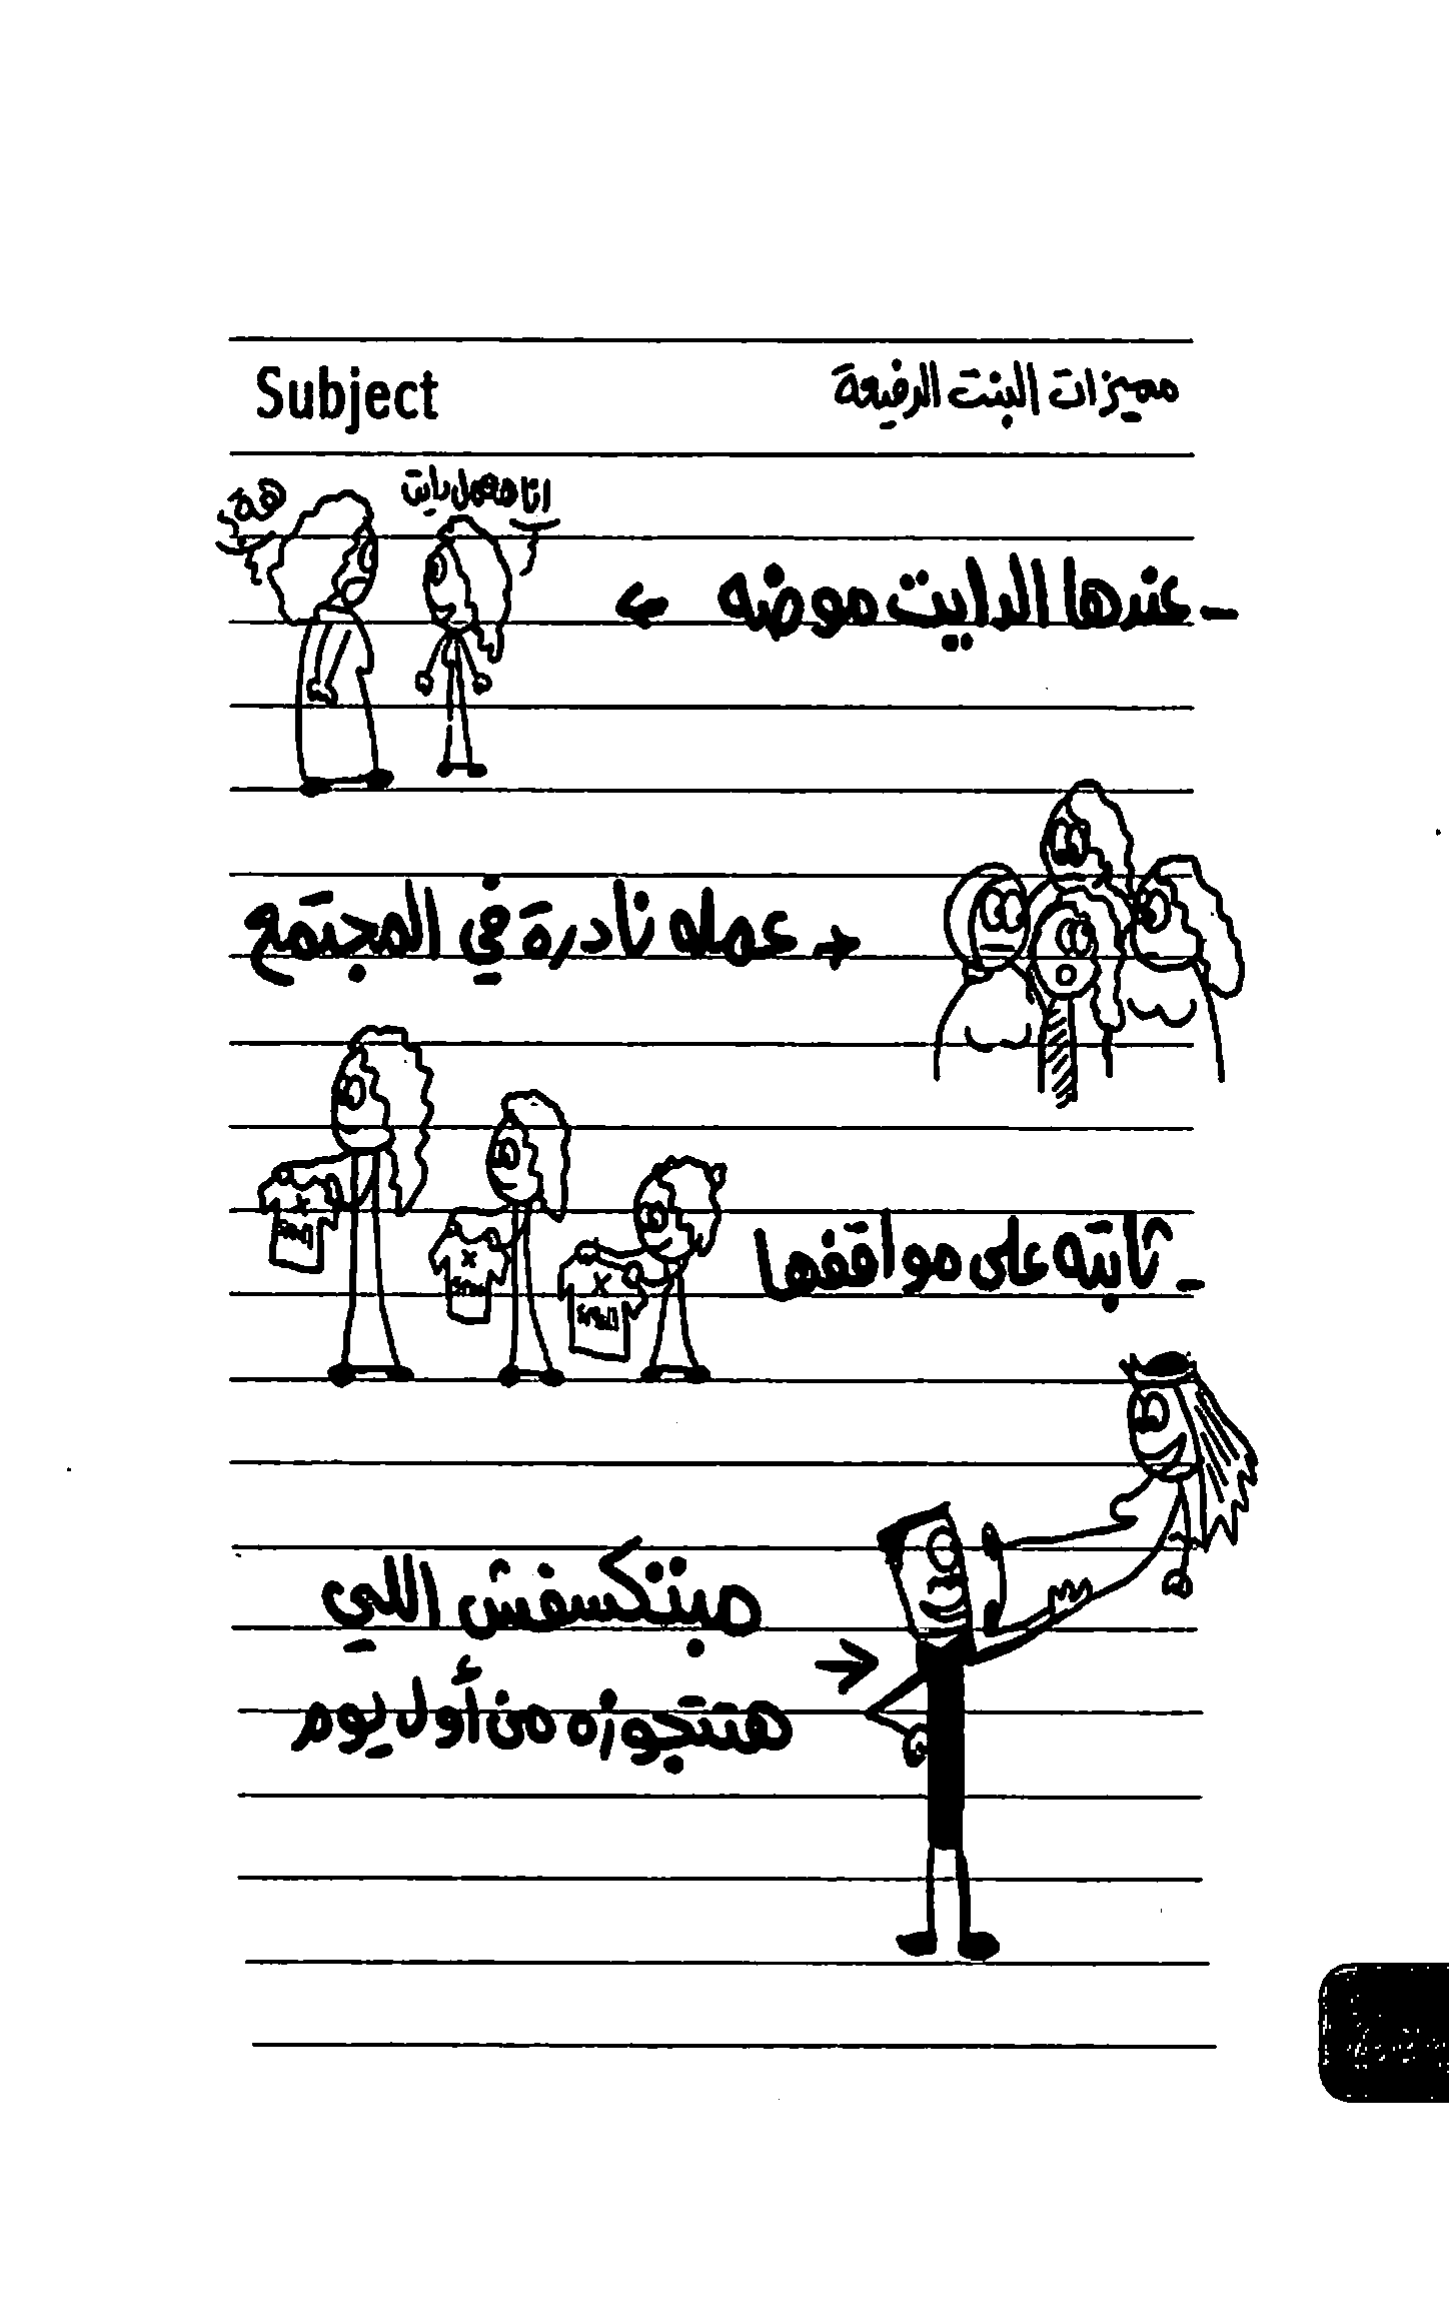 Subject
مميزات البنت الرفيعة
انا هعمل دايت
هئ
- عندها الدايت موضه
عمله نادرة في المجتمع
- ثابته على مواقفها
X
Small
X
Small
X
Small
مبتكسفش اللي
هتتجوزه من أول يوم